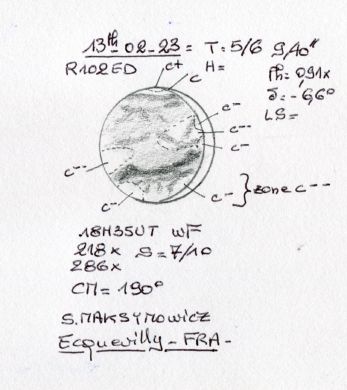 13th 02-23 = T: 5/6 9,40"
R102ED c+ H=
c Ph= 0,91x
δ= -6,6°
c- LS=
c--
c-
c--
c- c- } zone c--
18H35UT WF
218x S=7/10
286x
CM= 190°
S.MAKSYMOWICZ
Ecquevilly - FRA -